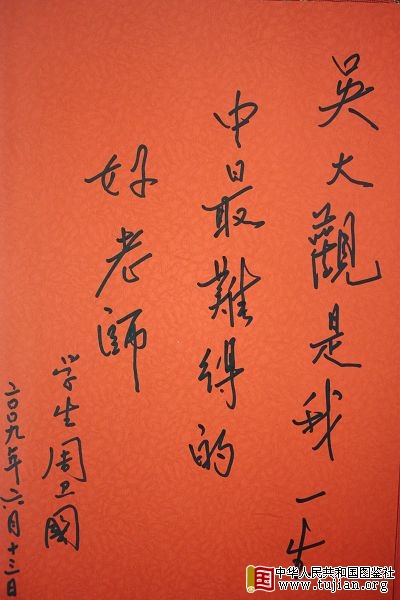 吳大觀是我一生
中最難得的
好老師
学生周卫國
二〇〇九年六月十三日
中华人民共和国图鉴社
http://www.tujian.org